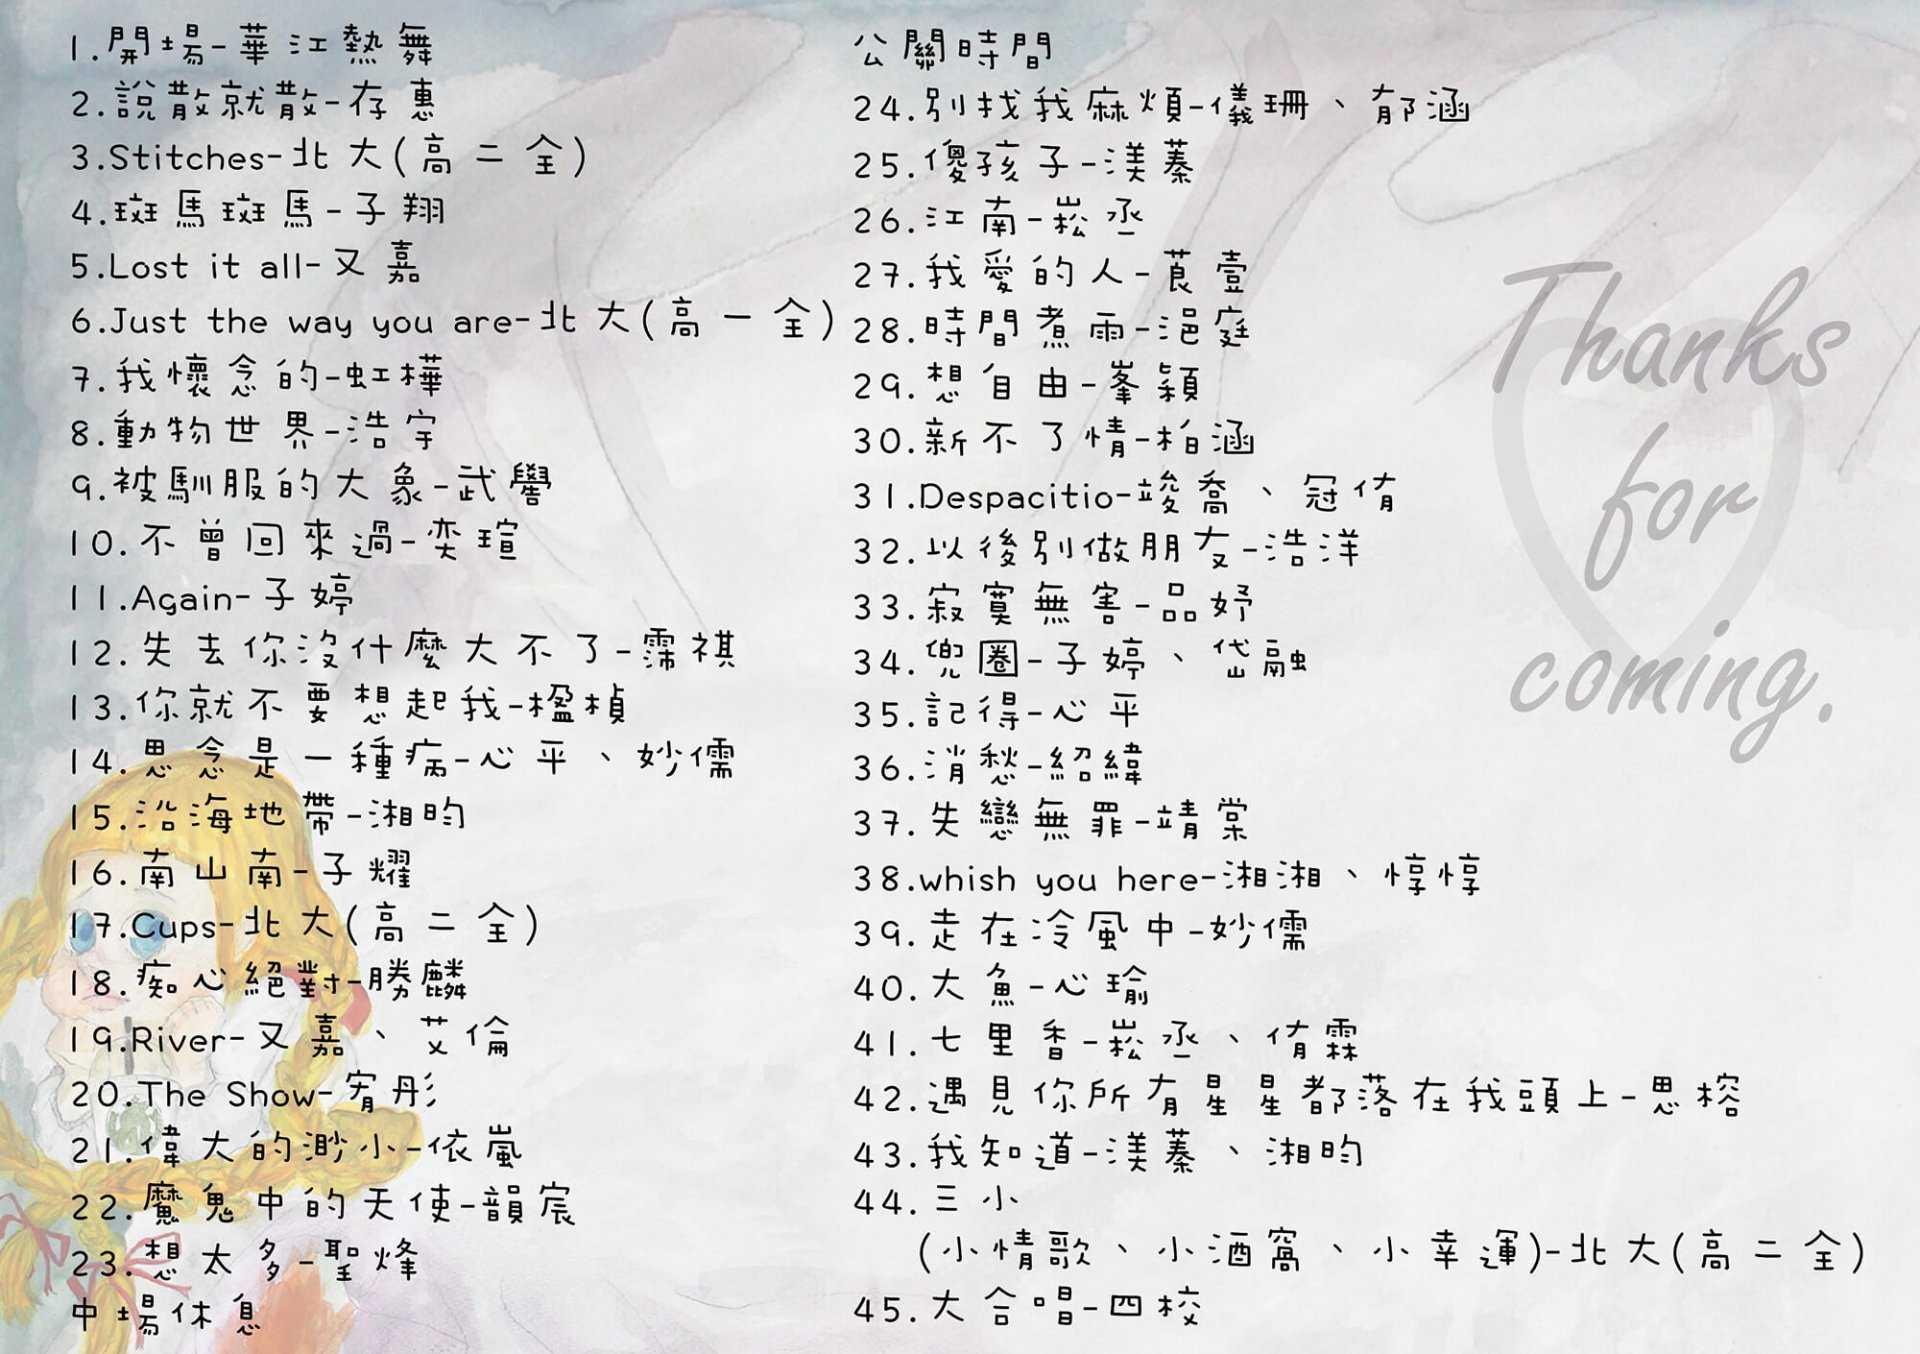 1.開場-華江熱舞
2.說散就散-存惠
3.Stitches-北大(高二全)
4.斑馬斑馬-子翔
5.Lost it all-又嘉
6.Just the way you are-北大(高一全)
7.我懷念的-虹樺
8.動物世界-浩宇
9.被馴服的大象-武譽
10.不曾回來過-奕瑄
11.Again-子婷
12.失去你沒什麼大不了-霈祺
13.你就不要想起我-楹楨
14.思念是一種病-心平、妙儒
15.沿海地帶-湘昀
16.南山南-子耀
17.Cups-北大(高二全)
18.痴心絕對-勝麟
19.River-又嘉、艾倫
20.The Show-宥彤
21.偉大的渺小-依嵐
22.魔鬼中的天使-韻宸
23.想太多-聖烽
中場休息
公關時間
24.別找我麻煩-儀珊、郁涵
25.傻孩子-渼蓁
26.江南-崧丞
27.我愛的人-莨壹
28.時間煮雨-浥庭
29.想自由-峯穎
30.新不了情-柏涵
31.Despacitio-竣喬、冠侑
32.以後別做朋友-浩洋
33.寂寞無害-品妤
34.兜圈-子婷、岱融
35.記得-心平
36.消愁-紹緯
37.失戀無罪-靖棠
38.whish you here-湘湘、惇惇
39.走在冷風中-妙儒
40.大魚-心瑜
41.七里香-崧丞、侑霖
42.遇見你所有星星都落在我頭上-思榕
43.我知道-渼蓁、湘昀
44.三小
(小情歌、小酒窩、小幸運)-北大(高二全)
45.大合唱-四校
Thanks
for
coming.